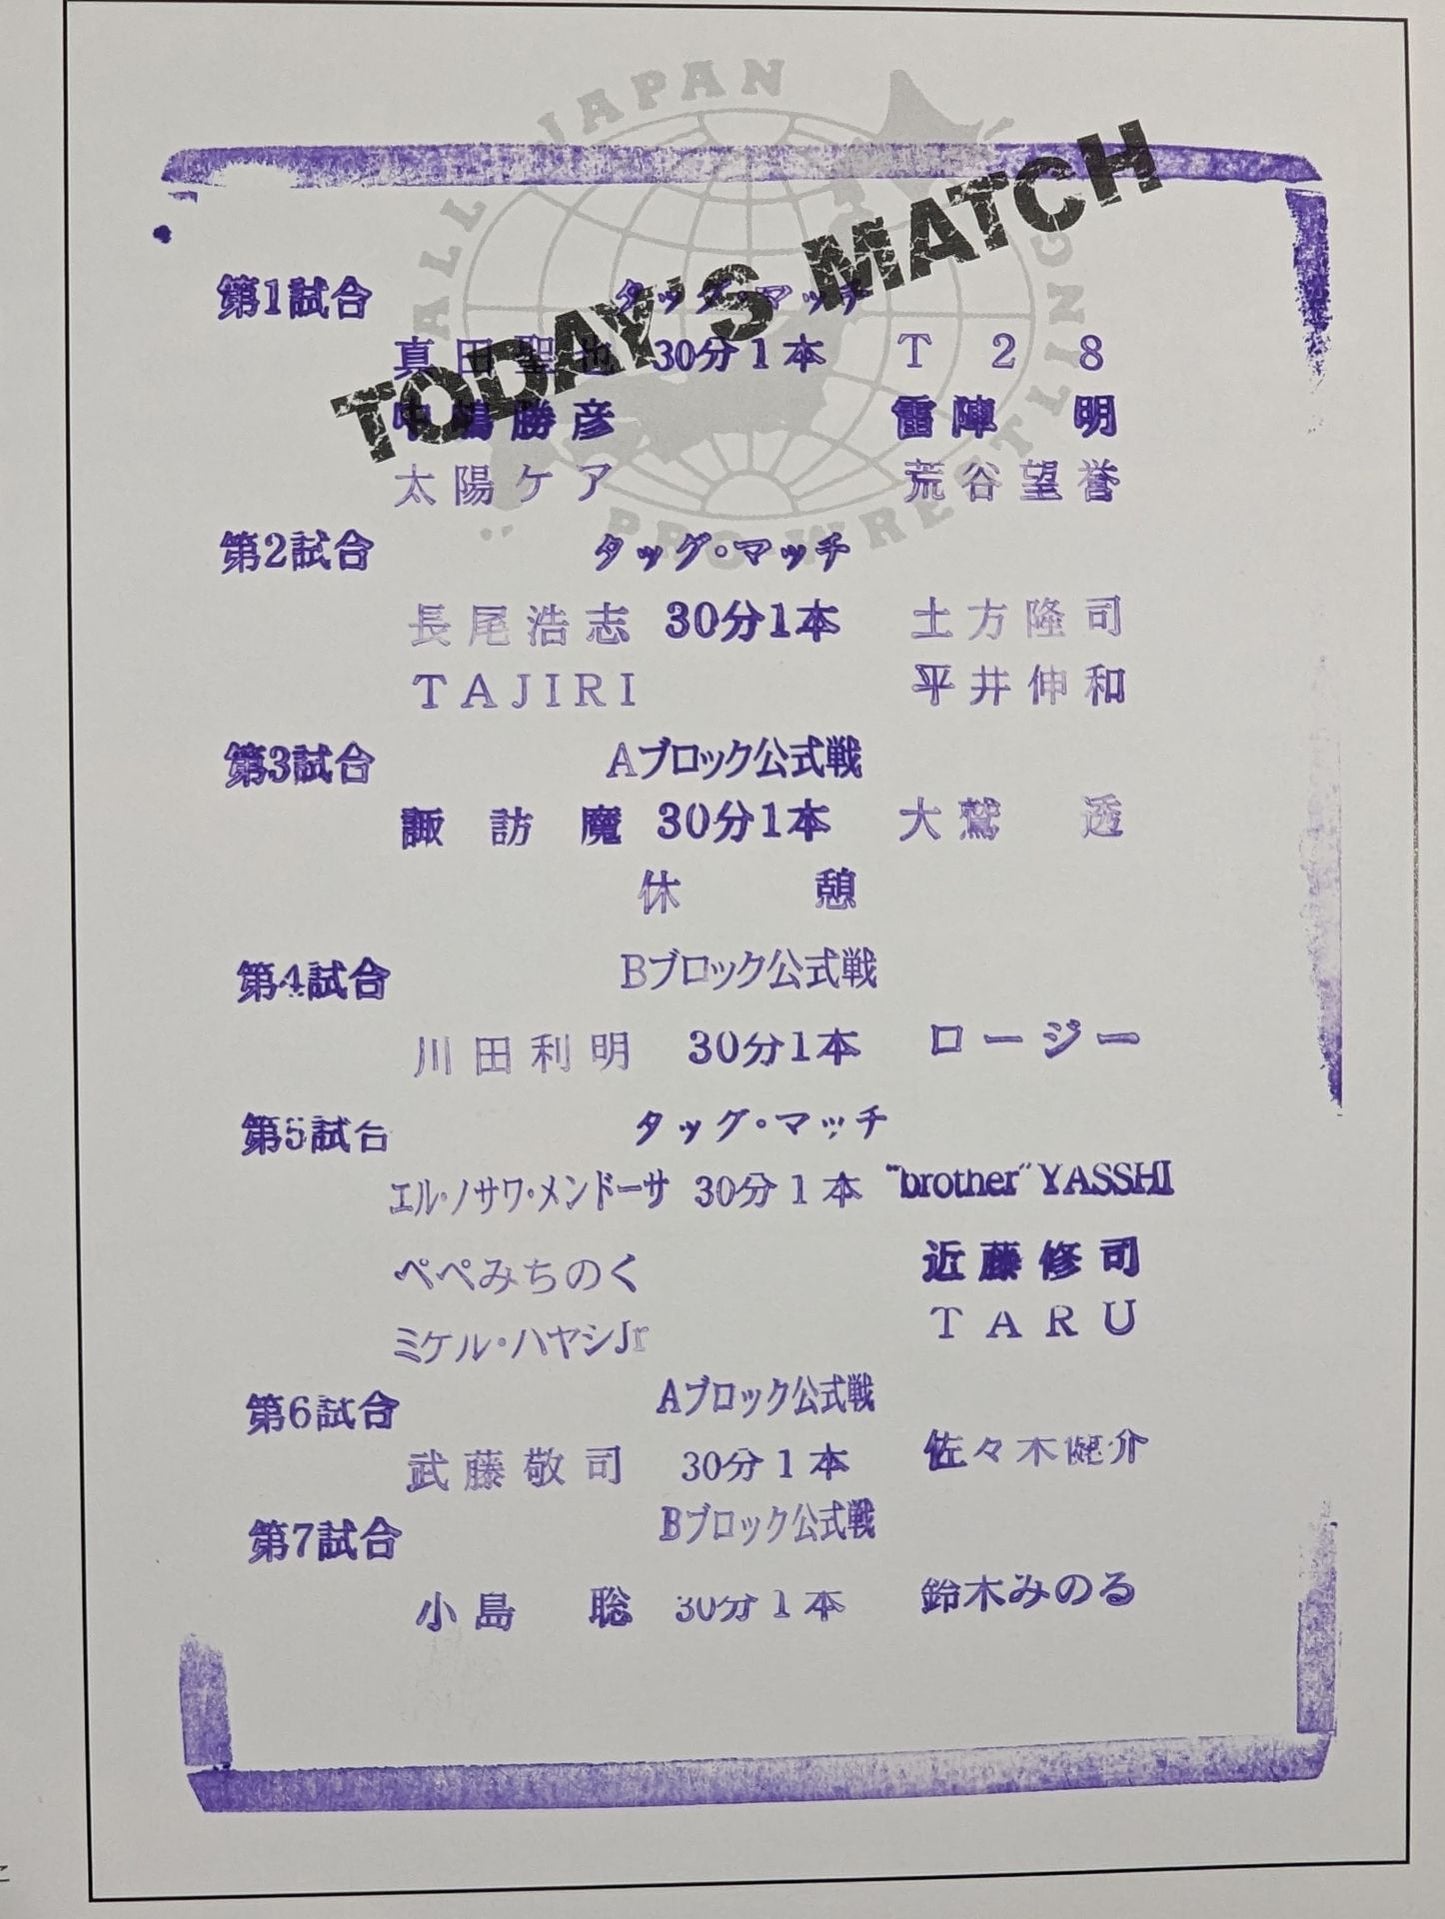 ALL JAPAN PRO-WRESTLING
TODAY'S MATCH
第1試合 タッグ・マッチ
真田聖也 30分1本 T28
中嶋勝彦 雷陣 明
太陽ケア 荒谷望誉
第2試合 タッグ・マッチ
長尾浩志 30分1本 土方隆司
TAJIRI 平井伸和
第3試合 Aブロック公式戦
諏訪魔 30分1本 大鷲 透
休憩
第4試合 Bブロック公式戦
川田利明 30分1本 ロージー
第5試合 タッグ・マッチ
エル・ノサワ・メンドーサ 30分1本 "brother"YASSHI
ペペみちのく 近藤修司
ミケル・ハヤシJr TARU
第6試合 Aブロック公式戦
武藤敬司 30分1本 佐々木健介
第7試合 Bブロック公式戦
小島 聡 30分1本 鈴木みのる